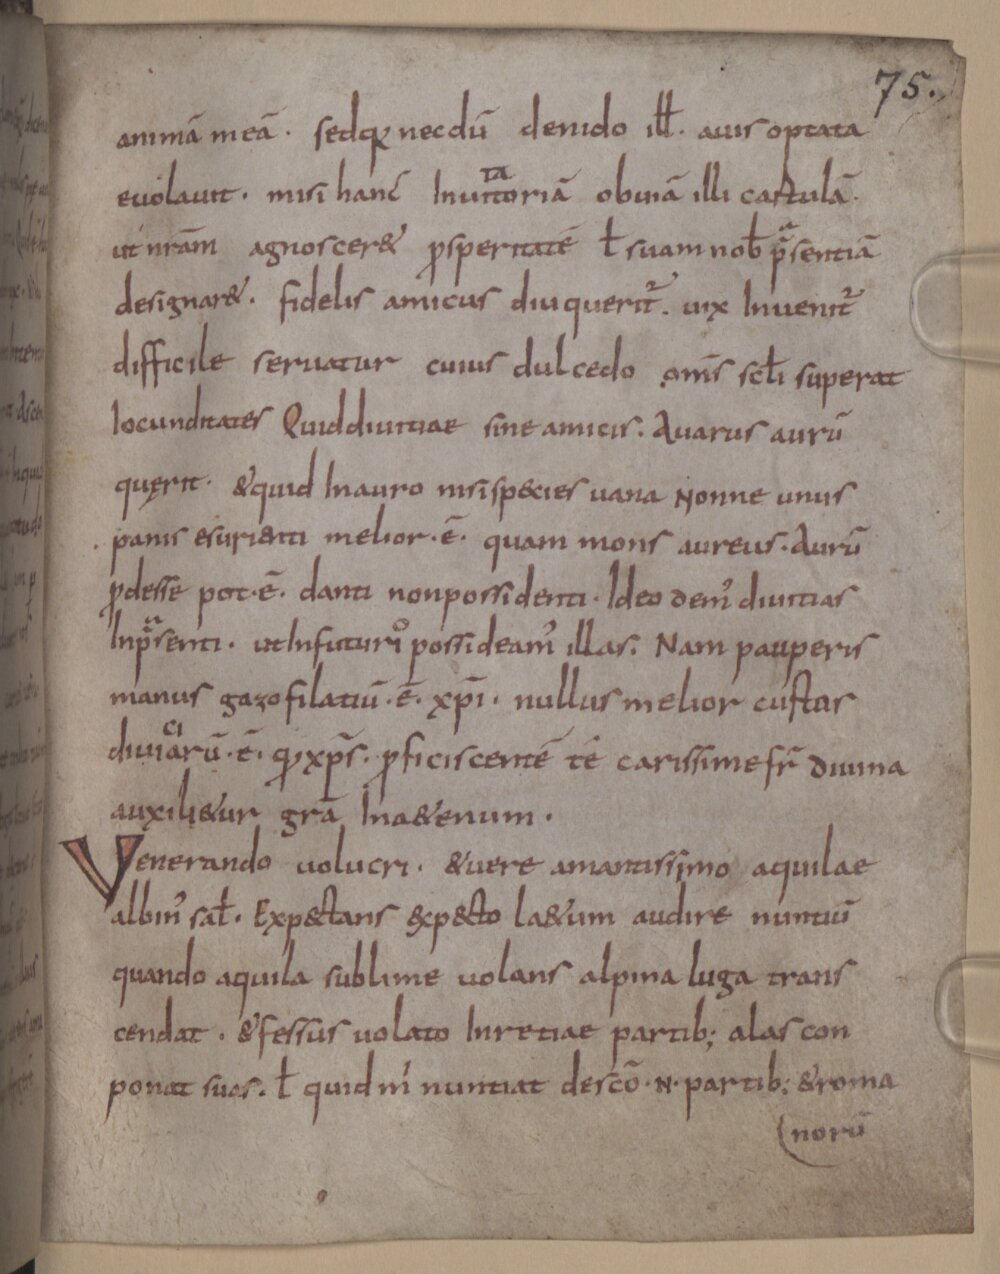 75.
animā meā · sedqꝛ necdū denido ill̅ · auis optata
euolauit · misi hanc Inuitatoriā obuiā illi cartulā ·
ut nr̄am agnoscer& ꝓsperitatē ł suam nob̄ p̄sentiā
designar& · fidelis amicus diu querit᷑ . uix Inuenit᷑
difficile seruatur cuius dulcedo om̄s scl̄i superat
Iocunditates Quid diuitiae sine amicis . Auarus aurū
quęrit · &quid Inauro nisi species uana Nonne unus
panis esurienti melior · ē · quam mons aureus · Aurū
ꝓdesse pot · ē · danti non possidenti · Ideo dem᾽ diuitias
Inp̄senti · ut Infuturo possideam᾽ illas . Nam pauperis
manus gazofilatiū · ē · xp̄i · nullus melior custos
diuiciarū · ē · qꝫ xp̄s . ꝓficiscentē tē carissime fr̄ diuina
auxili&ur gr̄a In&ernum ·
Venerando uolucri · &uere amantissimo aquilae
albin᾽ sał · Expectans expecto la&um audire nuntiū
quando aquila sublime uolans alpina Iuga trans
cendat · &fessus uolato Inretiae partib; alas con
ponat suas . ł quid m᾽ nuntiat descō · N · partib; &roma
norū